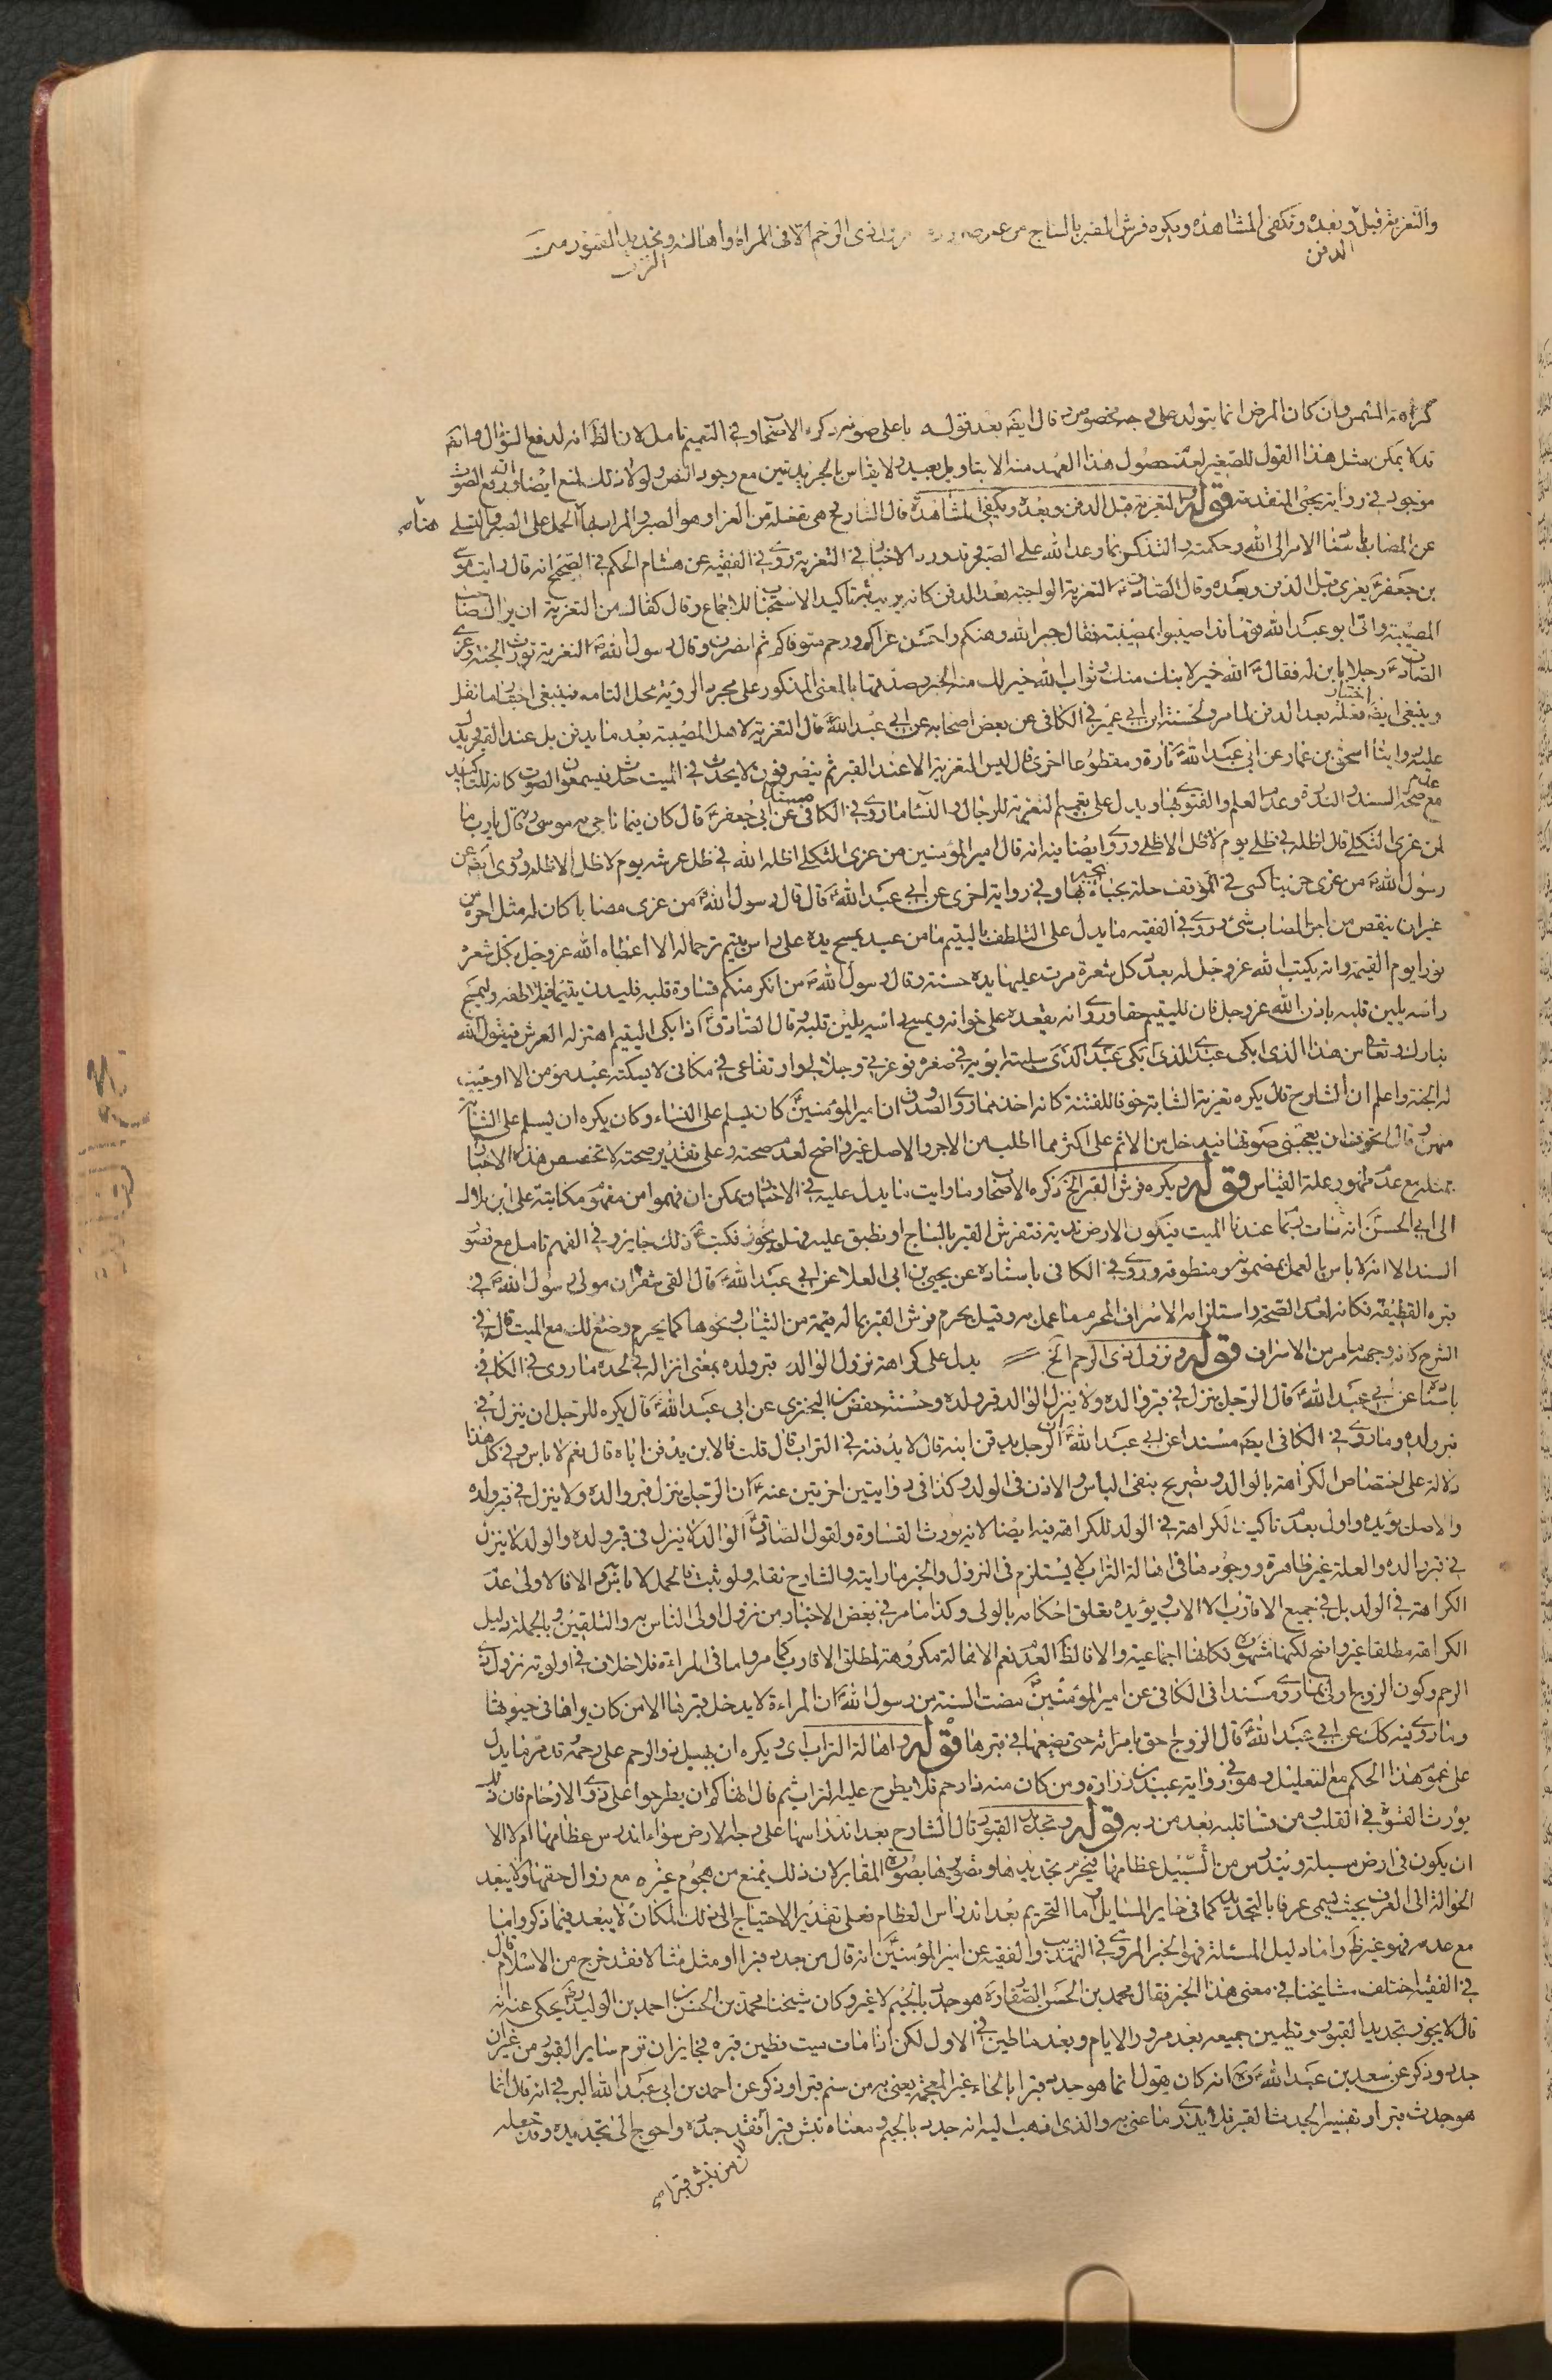 والتعزية قبل الدفن وبعده وتكفي المشاهدة ويكره فرش القبر بالساج من غير ضرورة ونزول ذي الرحم الا في المراة واهالته التراب وتجديد القبور
كراهة المشمس وان كان المرض انما يتولد على وجه مخصوص قال ايضا بعد قوله باعلى صوته ذكره الاصحاب وفي التعميم تامل لان الظ انه لدفع السؤال وايضا
قد لا يمكن مثل هذا القول للصغير لعدم حصول هذا العهد منه الا بتاويل بعيد ولا يقاس بالجريدتين مع وجود النص ولولا ذلك لمنع ايضا ورفع الصوت
موجود في رواية يحيى المتقدمة قوله والتعزية قبل الدفن وبعده ويكفي المشاهدة قال الشارح هي تفعلة من العزاء وهو الصبر والمراد بها الحمل على الصبر والتسلي
عن المصاب باسناد الامر الى الله وحكمته والتذكير بما وعد الله على الصبر قد ورد الاخبار في التعزية روى في الفقيه عن هشام الحكم في الصحيح انه قال رايت موسى
بن جعفر يعزي قبل الدفن وبعده وقال الصادق التعزية الواجبة بعد الدفن كانه يريد تاكيد الاستحباب للاجماع وقال كفاك من التعزية ان يراك صاحب
المصيبة واتى ابو عبد الله قوما قد اصيبوا بمصيبة فقال جبر الله وهنكم واحسن عزاكم ورحم متوفاكم ثم انصرف وقال رسول الله التعزية تورث الجنة وعزى
الصادق رجلا بابن له فقال الله خير لابنك منك وثواب الله خير لك منه الخبر وصدقها بالمعنى المذكور على مجرد الرؤية محل التامل فينبغي اختيار ما نقل
وينبغي ايضا فعله بعد الدفن لما مر ولحسنة ابن ابي عمير في الكافي عن بعض اصحابه عن ابي عبد الله قال التعزية لاهل المصيبة بعد ما يدفن بل عند القبر يدل
عليه روايتا اسحق بن عمار عن ابي عبد الله تارة ومقطوعا اخرى قال ليس التعزية الا عند القبر ثم ينصرفون لا يحدث في الميت حدث فيسمعون الصوت كانه للتاكيد
مع عدم صحة السند والندرة وعدم العلم والفتوى بها ويدل على تعميم التعزية للرجال والنساء ما روى في الكافي مسندا عن ابي جعفر قال كان فيما ناجى به موسى ربه قال يا رب ما
لمن عزى الثكلى قال اظله في ظلي يوم لا ظل الا ظلي وروى ايضا فيه انه قال امير المؤمنين من عزى الثكلى اظله الله في ظل عرشه يوم لا ظل الا ظله وروى ايضا عن
رسول الله من عزى حزينا كسى في الموقف حلة يحبا بها وفي رواية اخرى عن ابي عبد الله قال قال رسول الله من عزى مصابا كان له مثل اجره من
غير ان ينقص من اجر المصاب شيء وروى في الفقيه ما يدل على التلطف باليتيم ما من عبد يمسح يده على راس يتيم ترحما له الا اعطاه الله عز وجل بكل شعرة
نورا يوم القيمة وانه يكتب الله عز وجل له بعدد كل شعرة مرت عليها يده حسنة وقال رسول الله من انكر منكم قساوة قلبه فليدن يتيما فيلاطفه وليمسح
راسه يلين قلبه باذن الله عز وجل فان لليتيم حقا وروى انه يقعده على خوانه ويمسح راسه يلين قلبه وقال الصادق اذا بكى اليتيم اهتز له العرش فيقول الله
تبارك وتعالى من هذا الذي ابكى عبدي الذي سلبته ابويه في صغره فوعزتي وجلالي وارتفاعي في مكاني لا يسكته عبد مؤمن الا اوجبت
له الجنة واعلم ان الشارح قال يكره تعزية الشابة خوفا للفتنة كانه اخذ مما روى الصدوق ان امير المؤمنين كان يسلم على النساء وكان يكره ان يسلم على الشابة
منهن وقال اتخوف ان يعجبني صوتها فيدخل من الاثم علي اكثر مما اطلب من الاجر والاصل غير واضح لعدم صحته وعلى تقدير صحته لا تخصص هذه الاخبار
بمثله مع عدم ظهور علة القياس قوله ويكره فرش القبر الخ ذكره الاصحاب وما رايت ما يدل عليه في الاخبار ويمكن ان فهموا من مفهوم مكاتبة علي ابن بلال
الى ابي الحسن انه ربما مات عندنا الميت فيكون الارض ندية فنفرش القبر بالساج او نطبق عليه فهل يجوز فكتب ذلك جايز وفي الفهم تامل مع قصور
السند الا انه لا باس بالعمل بمضمونه ومنطوقه وروى في الكافي باسناده عن يحيى بن ابي العلا عن ابي عبد الله قال القى شقران مولى رسول الله في
قبره القطيفة فكانه لعدم الصحة واستلزامه الاسراف المحرم ما عمل به وقيل يحرم فرش القبر بما له قيمة من الثياب ونحوها كما يحرم وضع ذلك مع الميت قال في
الشرح كانه وجهه ما مر من الاسراف قوله ونزول ذي الرحم الخ يدل على كراهة نزول الوالد قبر ولده بمعنى انزاله في لحده ما روى في الكافي
باسناده عن ابي عبد الله قال الرجل ينزل في قبر والده ولا ينزل الوالد قبر ولده وحسنة حفص بن البختري عن ابي عبد الله قال يكره للرجل ان ينزل في
قبر ولده وما روى في الكافي ايضا مسندا عن ابي عبد الله الرجل يدفن ابنه قال لا يدفنه في التراب قال قلت فالابن يدفن اباه قال نعم لا باس وفي كل هذا
دلالة على اختصاص الكراهة بالوالد وتصريح بنفي الباس والاذن في الولد وكذا في روايتين اخرتين عنه ان الرجل ينزل قبر والده ولا ينزل في قبر ولده
والاصل يؤيده واولى بعدم تاكيد الكراهة في الولد للكراهة فيه ايضا لانه يورث القساوة ولقول الصادق الوالد لا ينزل في قبر ولده والولد لا ينزل
في قبر والده والعلة غير ظاهرة ووجودها في اهالة التراب لا يستلزم في النزول والخبر ما رايته والشارح نقله ولو ثبت فالحمل لا باس والا فالاولى عدم
الكراهة في الولد بل في جميع الاقارب الا الاب ويؤيده تعلق احكامه بالولي وكذا ما مر في بعض الاخبار من نزول اولى الناس به والتلقين وبالجملة دليل
الكراهة مطلقا غير واضح لكنها مشهورة فكانها اجماعية والا فالظ العدم نعم الاهالة مكروهة لمطلق الاقارب كما مر واما في المراءة فلا خلاف في اولوية نزول ذي
الرحم وكون الزوج اولى بما روى مسندا في الكافي عن امير المؤمنين مضت السنة من رسول الله ان المراءة لا يدخل قبرها الا من كان يراها في حيوتها
وما روى فيه كك عن ابي عبد الله قال الزوج احق بامراته حتى يضعها في قبرها قوله واهالة التراب اي يكره ان يهيل ذو الرحم على رحمه قد مر ما يدل
على عموم هذا الحكم مع التعليل وهو في رواية عبيد بن زرارة ومن كان منه ذا رحم فلا يطرح عليه التراب ثم قال انهاكم ان يطرحوا على ذوي الارحام فان ذلك
يورث القسوة في القلب ومن قسا قلبه بعد من ربه قوله وتجديد القبور قال الشارح بعد اندراسها على وجه الارض سواء اندرس عظامها ام لا الا
ان يكون في ارض مسبلة ويندرس من السبيل عظامها فيحرم تجديدها وتصويرها بصورة المقابر لان ذلك يمنع من هجوم غيره مع زوال حقها ولا يبعد
الحوالة الى العرف بحيث يسمى عرفا بالتجديد كما في ساير المسايل واما التحريم بعد اندراس العظام فعلى تقدير الاحتياج الى ذلك المكان لا يبعد فيما ذكر واما
مع عدمه فهو غير ظ واما دليل المسئلة فهو الخبر المروي في التهذيب والفقيه عن امير المؤمنين انه قال من جدد قبرا او مثل مثالا فقد خرج من الاسلام قال
في الفقيه اختلف مشايخنا في معنى هذا الخبر فقال محمد بن الحسن الصفار هو جدد بالجيم لا غير وكان شيخنا محمد بن الحسن بن احمد بن الوليد يحكي عنه انه
قال لا يجوز تجديد القبور وتطيين جميعه بعد مرور الايام وبعد ما طين في الاول لكن اذا مات ميت وطين قبره فجايز ان ترم ساير القبور من غير ان
جدد وذكر عن سعد بن عبد الله انه كان يقول انما هو حدد قبرا بالحاء غير المعجمة يعني به من سنم قبرا وذكر عن احمد بن ابي عبد الله البرقي انه قال انما
هو جدث قبرا وتفسير الجدث القبر فلا يدري ما عنى به والذي اذهب اليه انه جدد بالجيم ومعناه نبش قبرا فقد جدده واحوج الى تجديده وقد جعله
لان من نبش قبرا